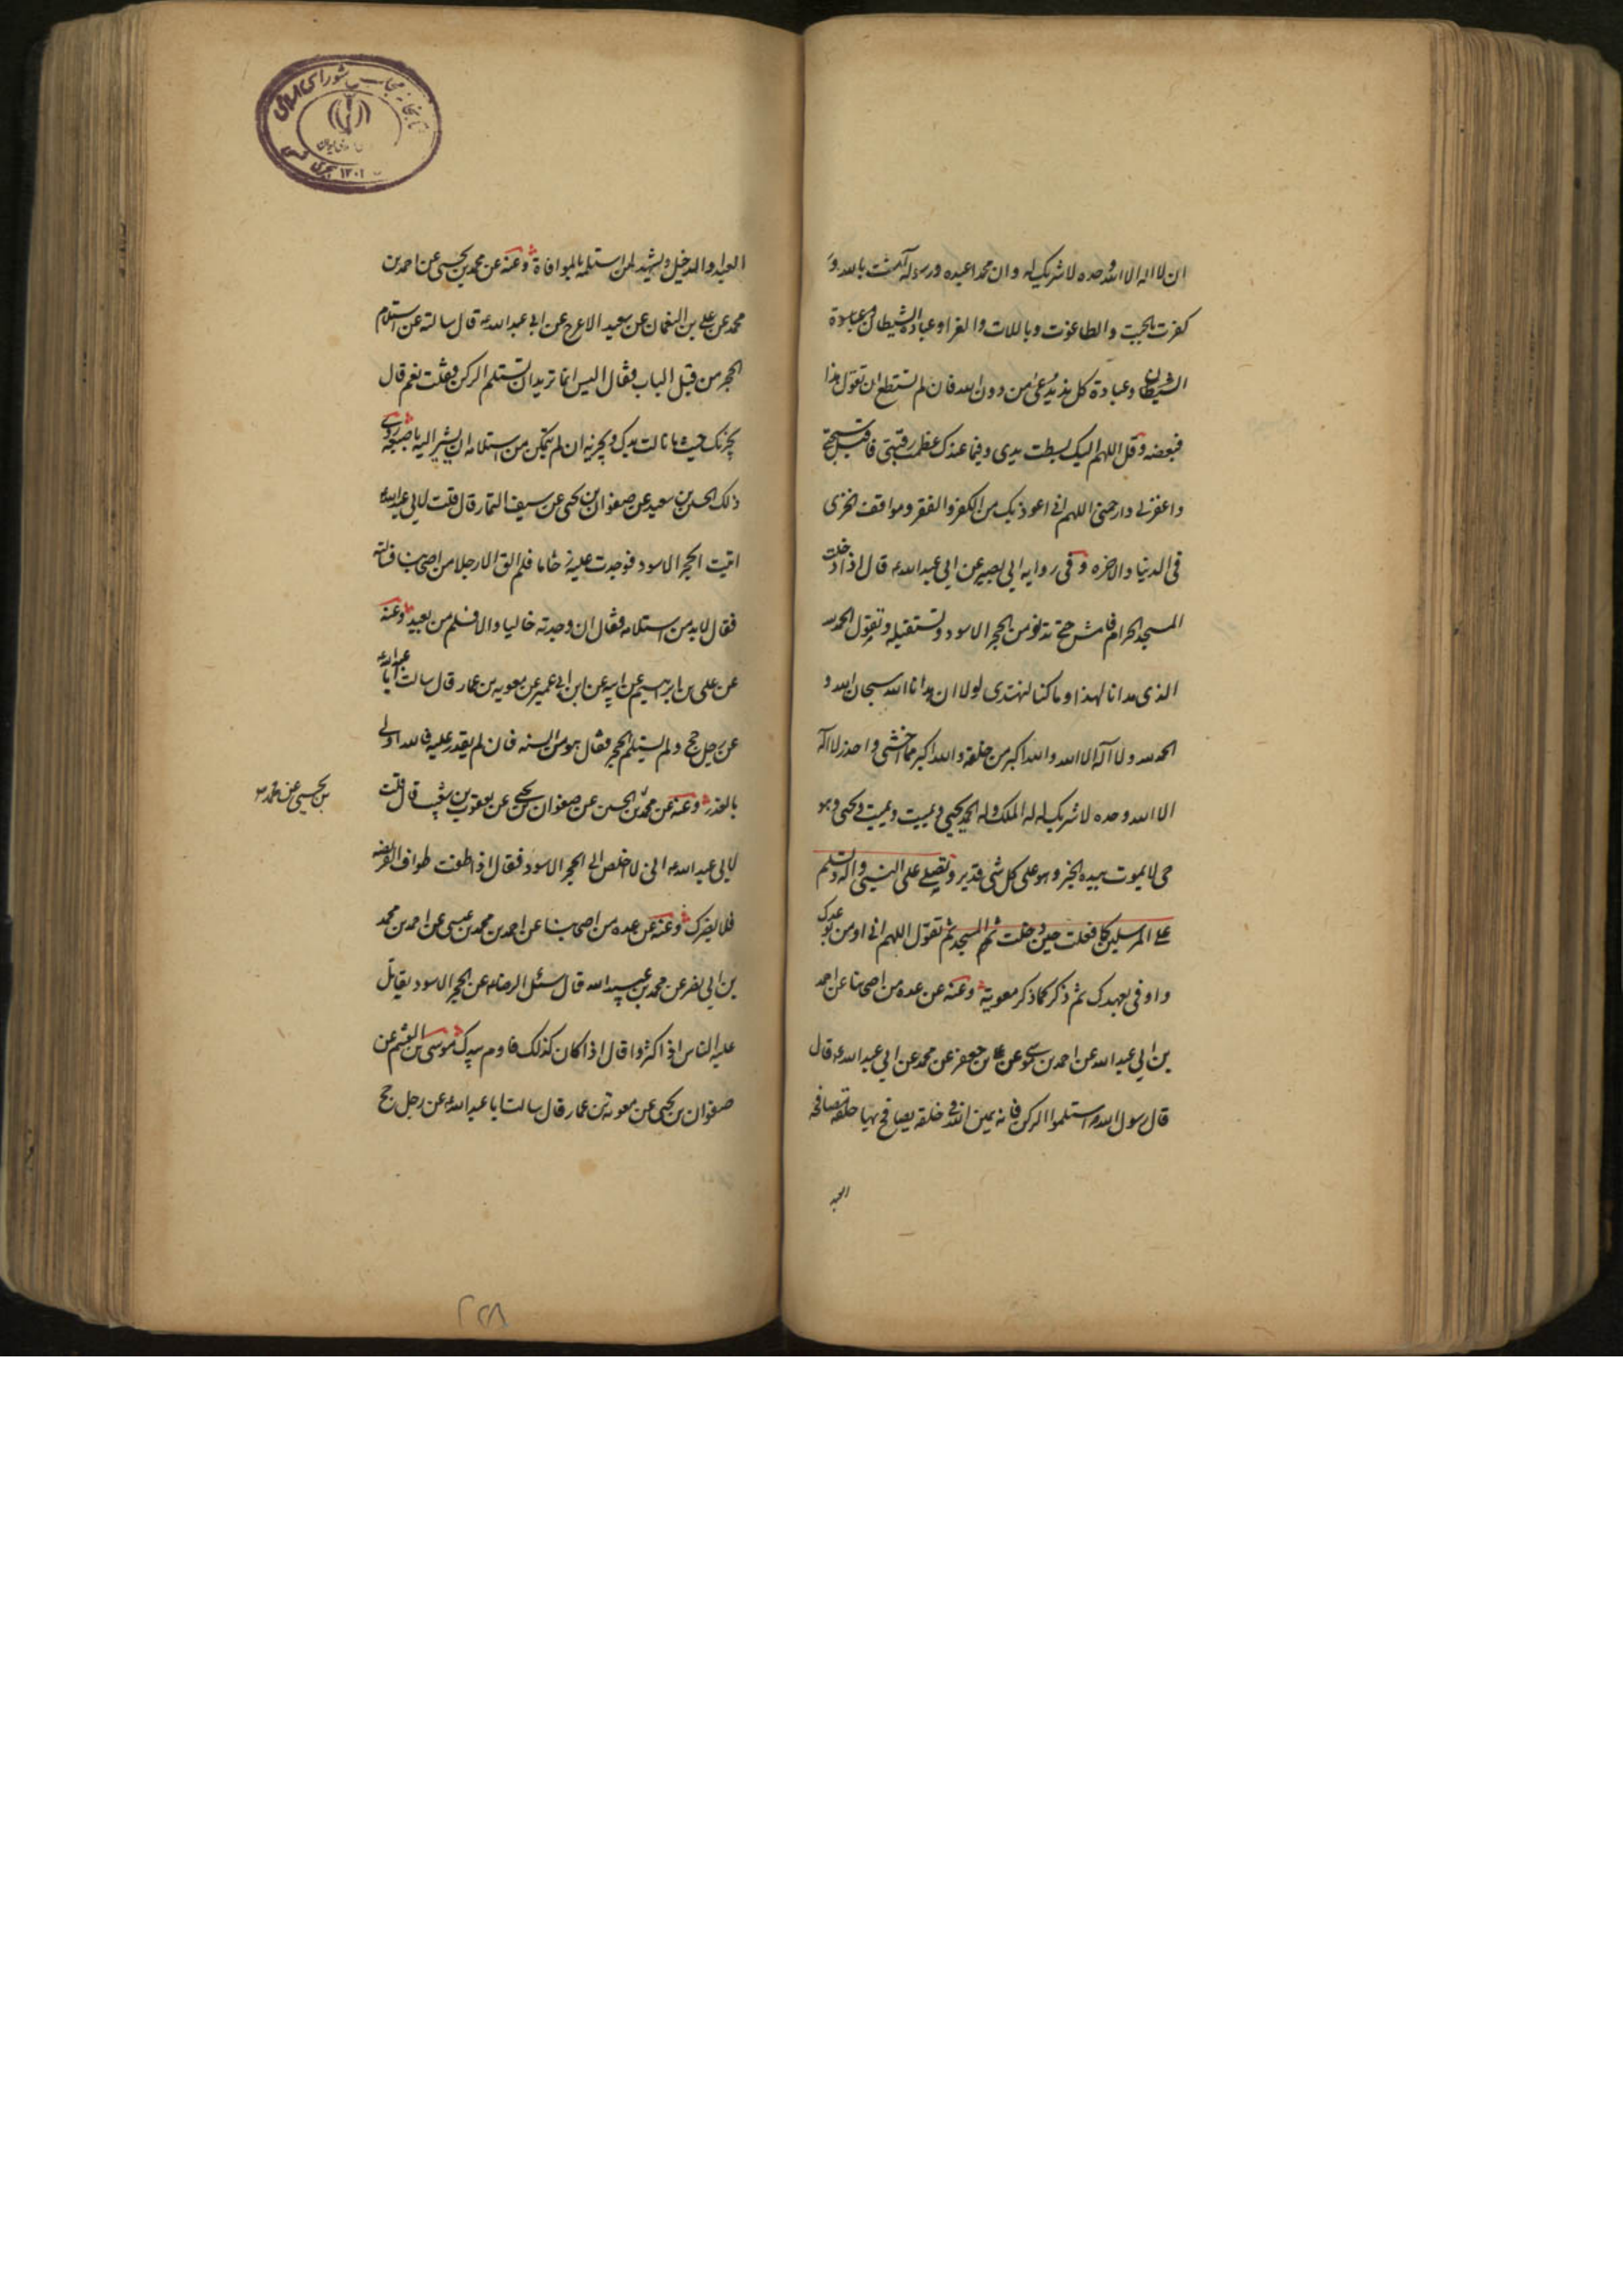 ان لا اله الا الله وحده لا شريك له وان محمدا عبده ورسوله آمنت بالله و
كفرت بالجبت والطاغوت وباللات والعزا وعبادة الشيطان وعبادة
الشيطان وعبادة كل ند يدعى من دون الله فان لم تستطع ان تقول هذا
فبعضه وقل اللهم اليك بسطت يدى وفيما عندك عظمت رغبتى فاقبل سبحتى
واغفر لى وارحمنى اللهم انى اعوذ بك من الكفر والفقر ومواقف الخزى
فى الدنيا والاخره وفى روايه ابى بصير عن ابى عبد الله ع قال اذا دخلت
المسجد الحرام فامش حتى تدنو من الحجر الاسود وتستقبله وتقول الحمد لله
الذى هدانا لهذا وما كنا لنهتدى لولا ان هدانا الله سبحان الله و
الحمد لله ولا آله الا الله والله اكبر من خلقه والله اكبر مما اخشى واحذر لا اله
الا الله وحده لا شريك له له الملك وله الحمد يحيى ويميت ويميت ويحيى وهو
حى لا يموت بيده الخير وهو على كل شى قدير وتصلى على النبى وآله وتسلم
على المرسلين كما فعلت حين دخلت المسجد ثم تقول اللهم انى اومن بوعدك
واوفى بعهدك ثم ذكر كما ذكر معوية وعنه عن عده من اصحابنا عن احمد
بن ابى عبد الله عن احمد بن موسى عن على بن جعفر عن محمد عن ابى عبد الله ع قال
قال رسول الله استلموا الركن فانه يمين الله فى خلقه يصافح بها خلقه مصافحه
العبد او الدخيل ويشهد لمن استلمه بالموافاة وعنه عن محمد بن يحيى عن احمد بن
محمد عن على بن النعمان عن سعيد الاعرج عن ابى عبد الله ع قال سالته عن استلام
الحجر من قبل الباب فقال اليس انما تريد ان تستلم الركن فقلت نعم قال
يجزيك حيث ما نالت يدك ويجزيه ان لم يتمكن من استلامه ان يشير اليه باصبعه روى
ذلك الحسين بن سعيد عن صفوان بن يحيى عن سيف التمار قال قلت لابى عبد الله ع
اتيت الحجر الاسود فوجدت عليه زحاما فلم الق الا رجلا من اصحابنا فسالته
فقال لابد من استلامه فقال ان وجدته خاليا والا فسلم من بعيد وعنه
عن على بن ابرهيم عن ابيه عن ابن ابى عمير عن معويه بن عمار قال سالت ابا عبد الله ع
عن رجل حج ولم يستلم الحجر فقال هو من السنه فان لم يقدر عليه فالله اولى
بالعذر وعنه عن محمد بن الحسين عن صفوان بن يحيى عن يعقوب بن شعيب قال قلت
بن يحيى عن محمد
لابى عبد الله ع انى لا اخلص الى الحجر الاسود فقال اذا طفت طواف الفريضه
فلا يضرك وعنه عن عده من اصحابنا عن احمد بن محمد بن عيسى عن احمد بن محمد
بن ابى نصر عن محمد بن عبيد الله قال سئل الرضا ع عن الحجر الاسود يقاتل
عليه الناس اذا كثروا قال اذا كان كذلك فاوم بيدك موسى بن القسم عن
صفوان بن يحيى عن معوية بن عمار قال سالت ابا عبد الله ع عن رجل حج